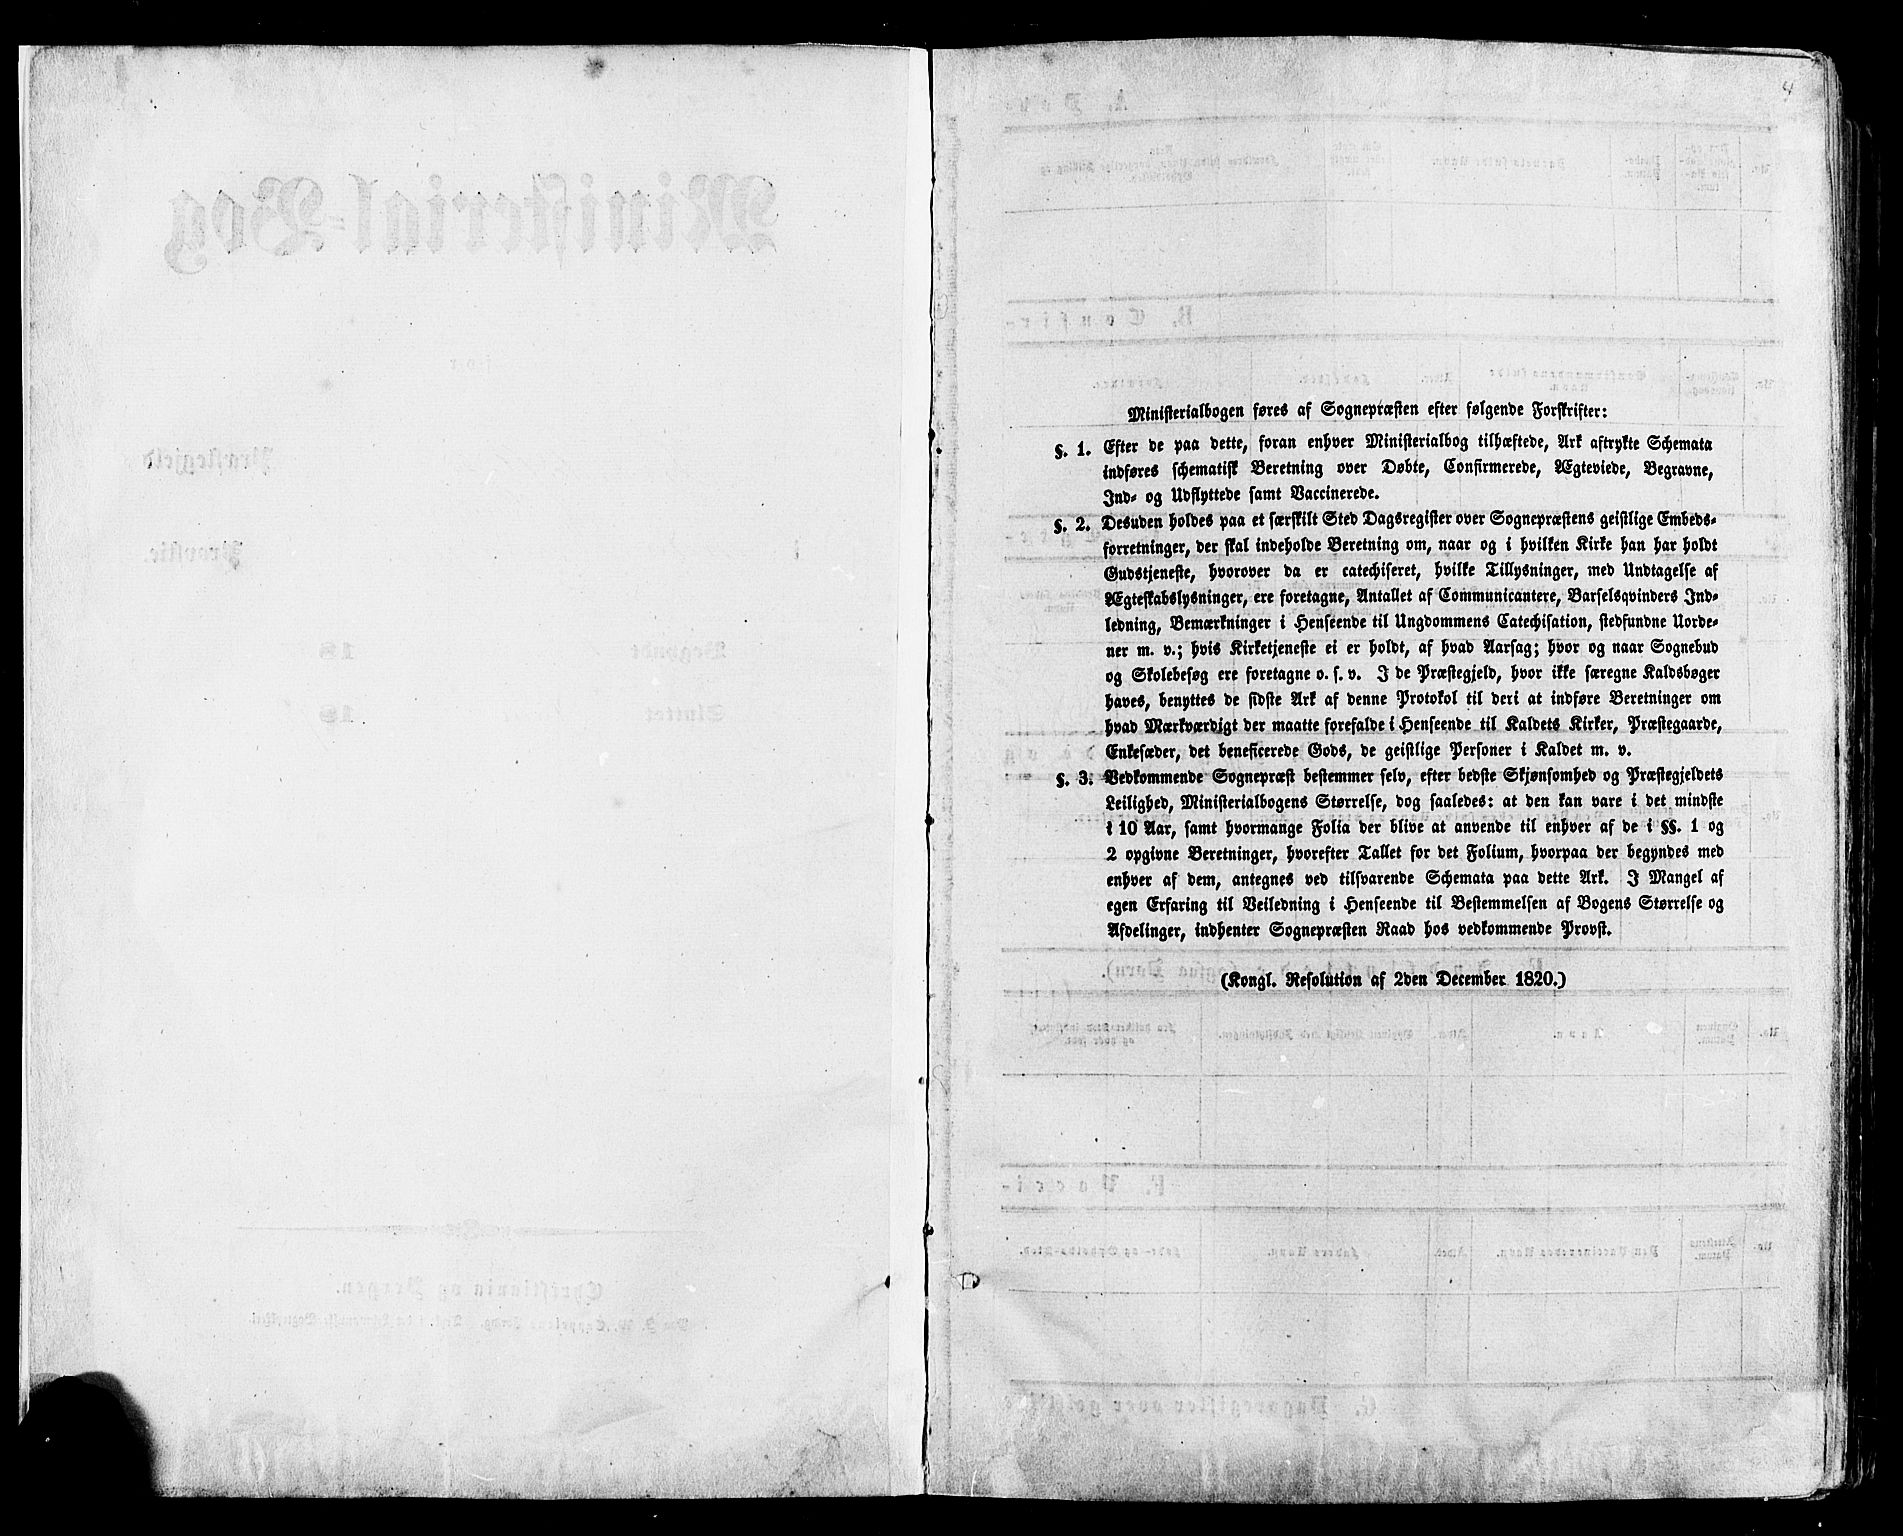 4
Ministerialbogen føres af Sognepræsten efter følgende Forskrifter:
§. 1. Efter de paa dette, foran enhver Ministerialbog tilhæftede, Ark aftrykte Schemata
indføres schematisk Beretning over Døbte, Confirmerede, Ægteviede, Begravne,
Ind- og Udflyttede samt Vaccinerede.
§. 2. Desuden holdes paa et særskilt Sted Dagsregister over Sognepræstens geistlige Embeds-
forretninger, der skal indeholde Beretning om, naar og i hvilken Kirke han har holdt
Gudstjeneste, hvorover da er catechiseret, hvilke Tillysninger, med Undtagelse af
Ægteskabslysninger, ere foretagne, Antallet af Communicantere, Barselqvinders Ind-
ledning, Bemærkninger i Henseende til Ungdommens Catechisation, stedfundne Uorde-
ner m. v.; hvis Kirketjeneste ei er holdt, af hvad Aarsag; hvor og naar Sognebud
og Skolebesøg ere foretagne o. s. v. I de Præstegjeld, hvor ikke særegne Kaldsbøger
haves, benyttes de sidste Ark af denne Protokol til deri at indføre Beretninger om
hvad Mærkværdigt der maatte forefalde i Henseende til Kaldets Kirker, Præstegaarde,
Enkesæder, det beneficerede Gods, de geistlige Personer i Kaldet m. v.
§. 3. Vedkommende Sognepræst bestemmer selv, efter bedste Skjønsomhed og Præstegjeldets
Leilighed, Ministerialbogens Størrelse, dog saaledes: at den kan vare i det mindste
i 10 Aar, samt hvormange Folia der blive at anvende til enhver af de i §§. 1 og
2 opgivne Beretninger, hvorefter Tallet for det Folium, hvorpaa der begyndes med
enhver af dem, antegnes ved tilsvarende Schemata paa dette Ark. I Mangel af
egen Erfaring til Veiledning i Henseende til Bestemmelsen af Bogens Størrelse og
Afdelinger, indhenter Sognepræsten Raad hos vedkommende Provst.
(Kongl. Resolution af 2den December 1820.)